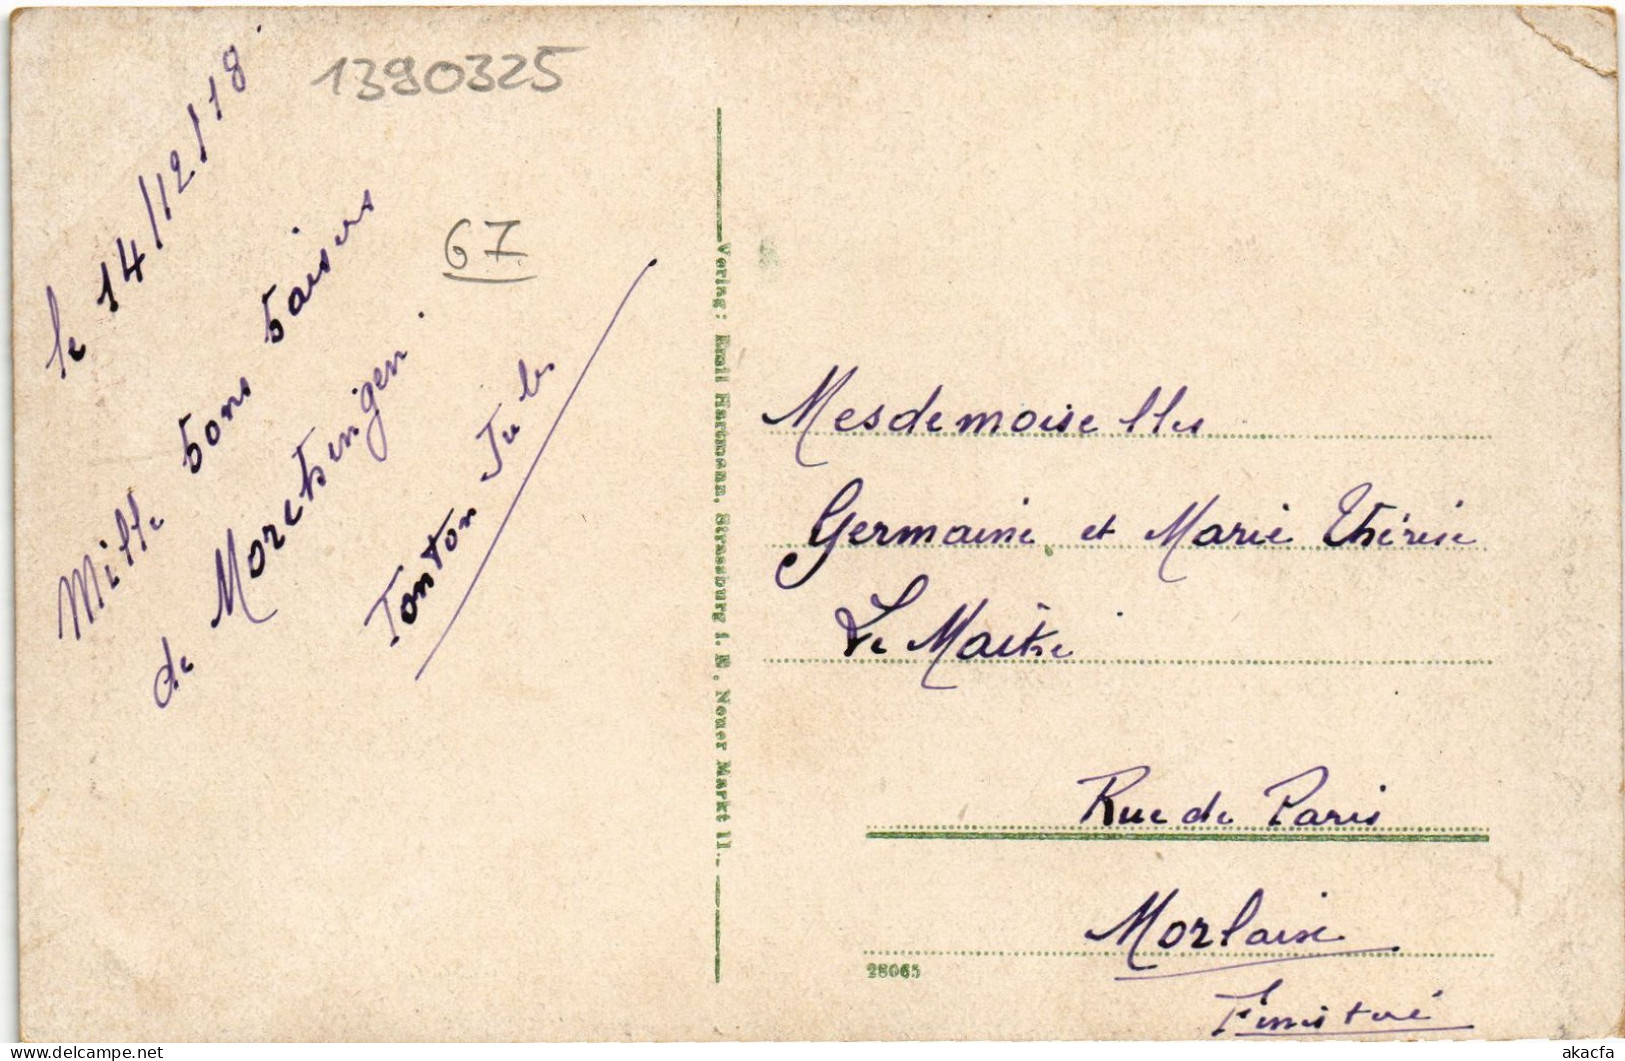 1390325
le 14/12/18
67
Mille bons baisers
de Moretsingen.
Tonton Jules
Verlag: Emil Hartmann, Strassburg i. E., Neuer Markt 11.
Mesdemoiselles
Germaine et Marie Thérèse
Le Maitre
Rue de Paris
Morlaix
Finistère
28065
akacfa